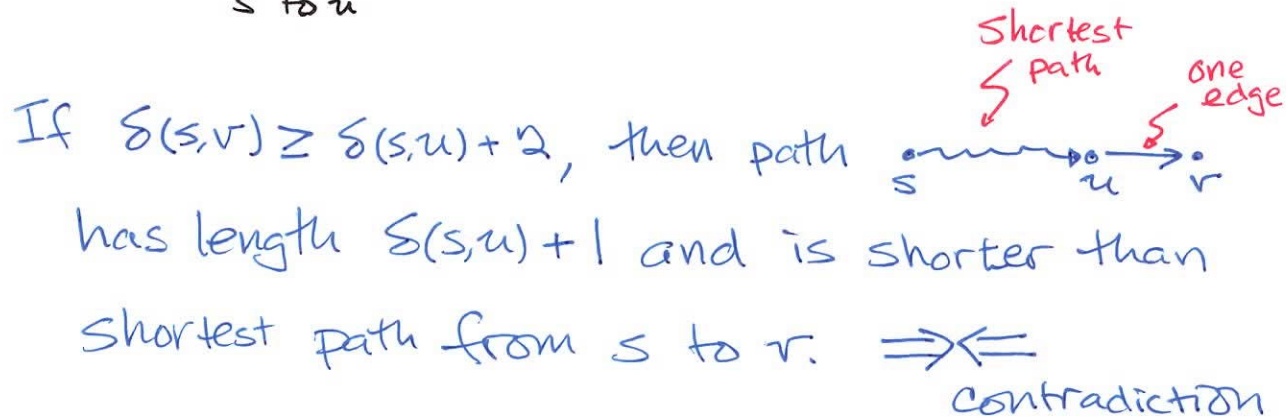 s to u
Shortest
path
one
edge
If δ(s,v) ≥ δ(s,u) + 2, then path
s u v
has length δ(s,u) + 1 and is shorter than
shortest path from s to v. ⇒⇐
contradiction